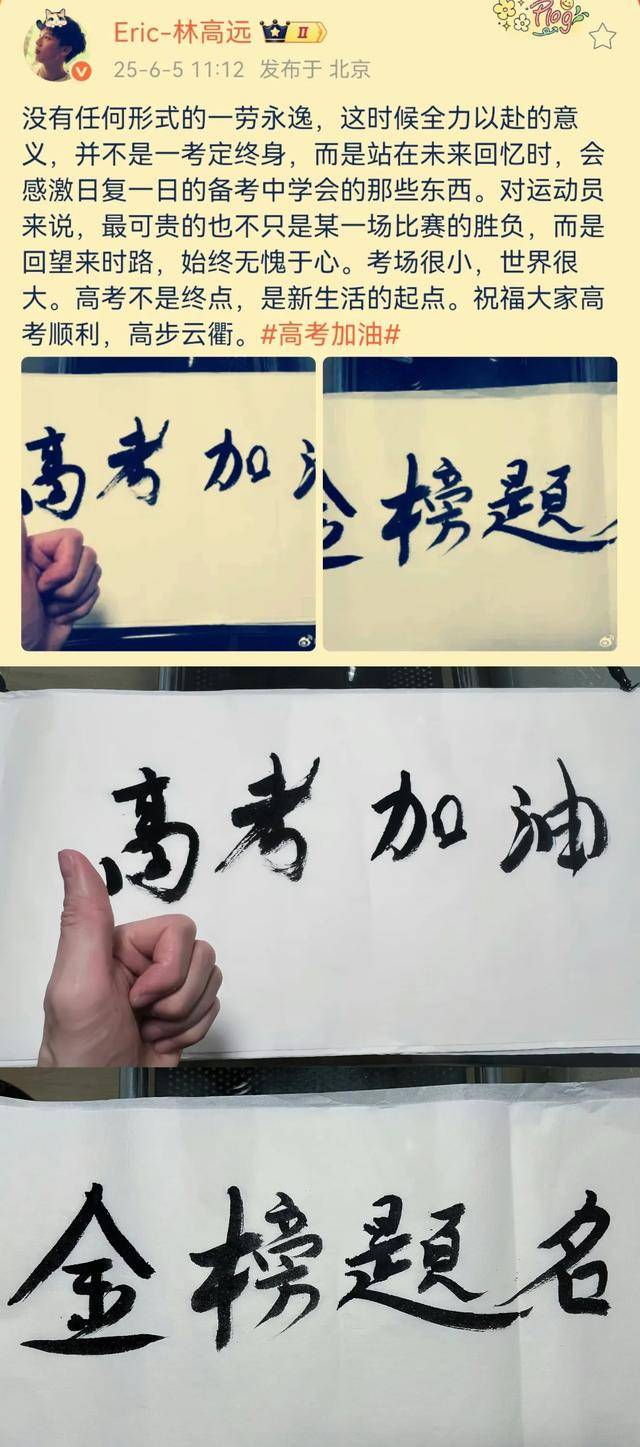 Plog
Eric-林高远 II
25-6-5 11:12 发布于 北京
没有任何形式的一劳永逸，这时候全力以赴的意
义，并不是一考定终身，而是站在未来回忆时，会
感激日复一日的备考中学会的那些东西。对运动员
来说，最可贵的也不只是某一场比赛的胜负，而是
回望来时路，始终无愧于心。考场很小，世界很
大。高考不是终点，是新生活的起点。祝福大家高
考顺利，高步云衢。#高考加油#
高考加油
金榜题
高考加油
金榜題名